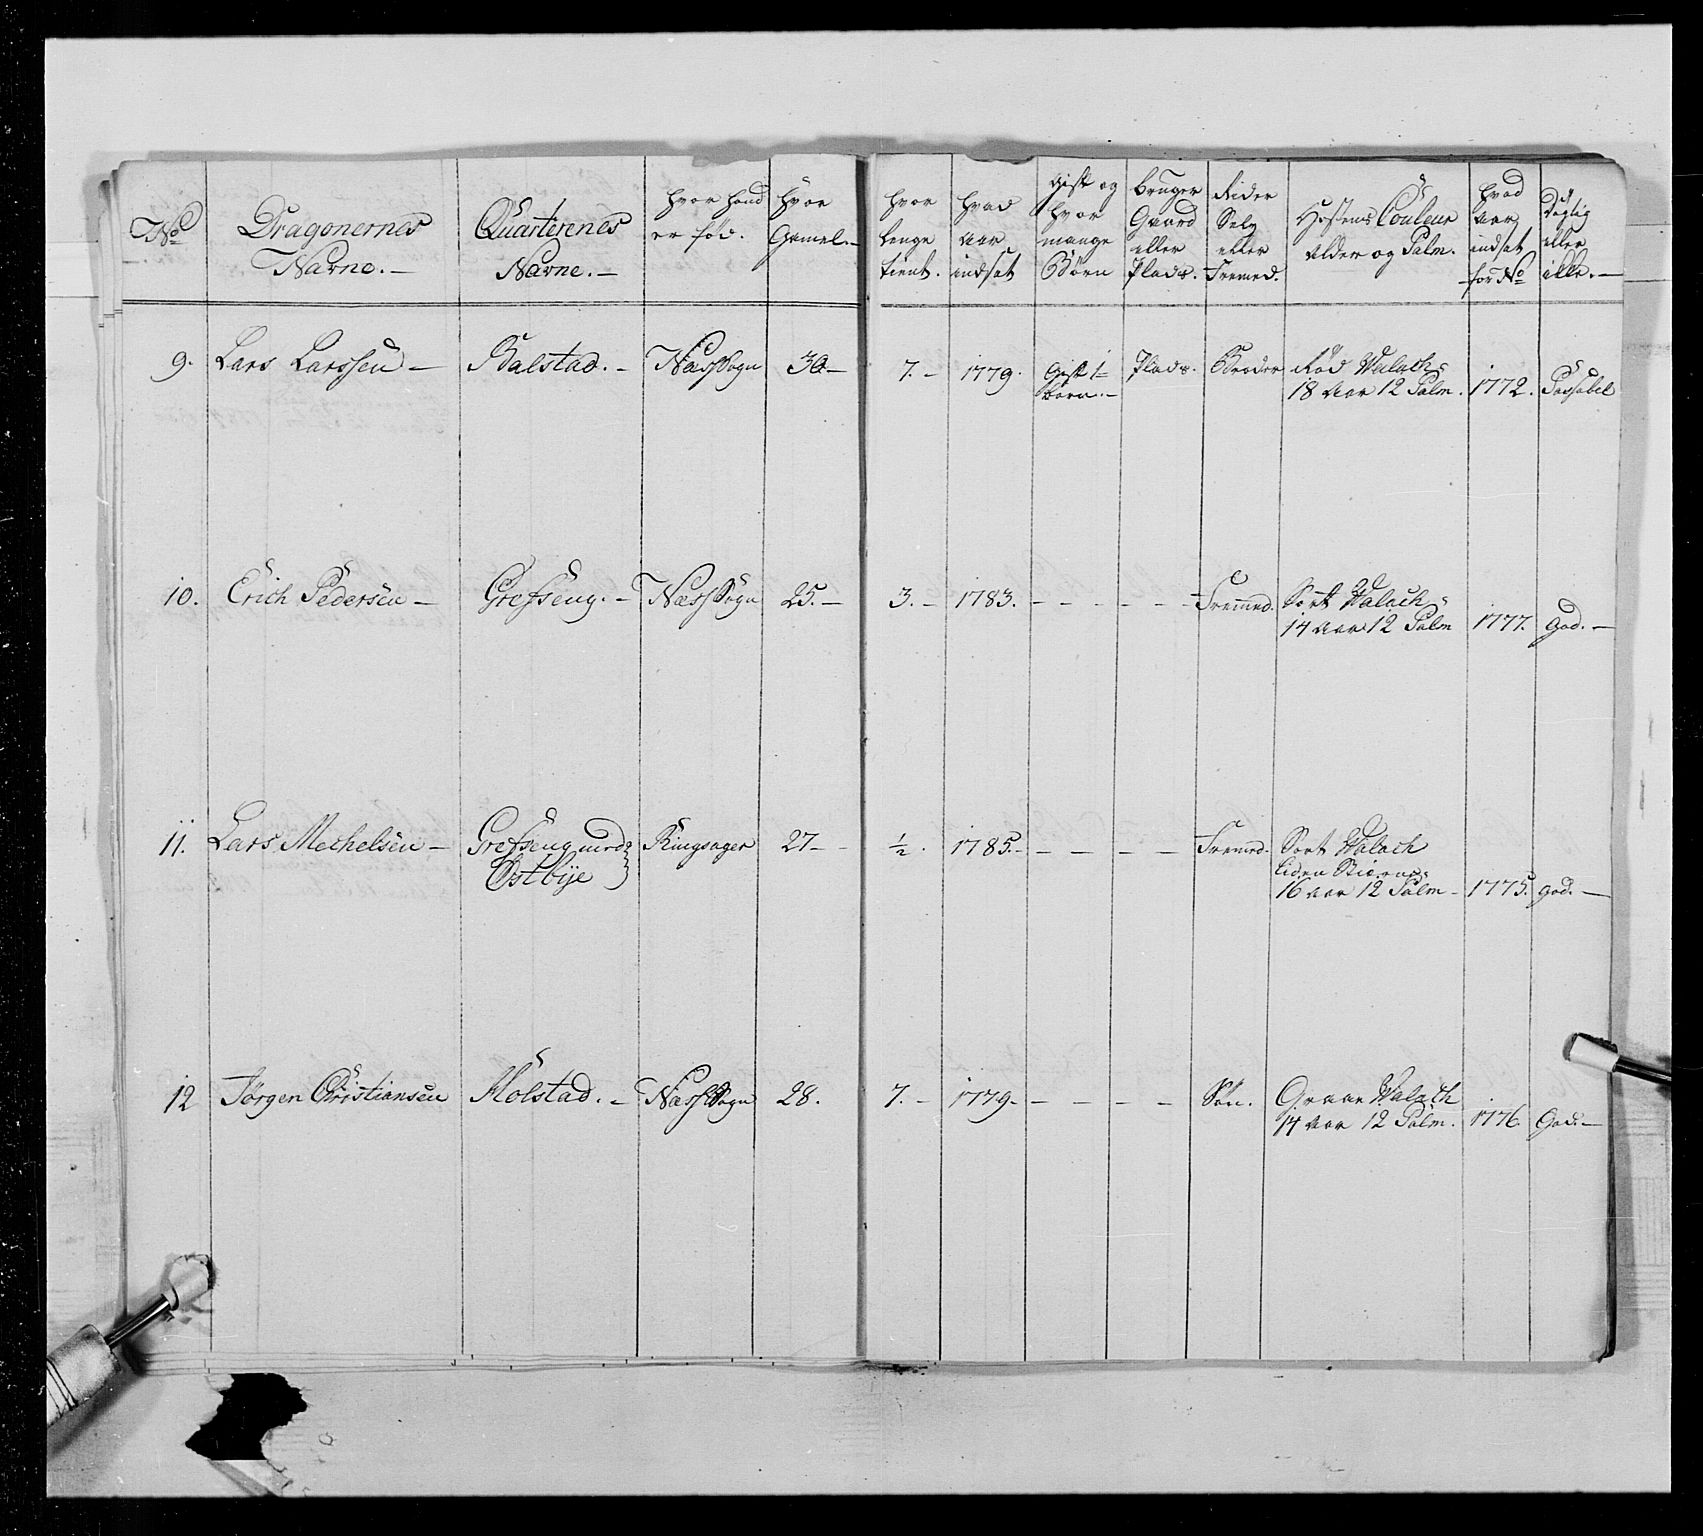 No
Dragonernes
Navne. —
Quarterenes
Navne. —
hvor hand
er fød.
hvor
Gamel. —
hvor
lenge
tient.
hvad
aar
indsat
Gift og
hvor
mange
Børn
bruger
Gaard
eller
Plads.
Rider
Selv
eller
Fremed.
Hæstens Couleur
Alder og Palm.
hvad
aar
indsat
for No
Dygtig
eller
ille. —
9. Lars Larssen — Balstad. — Næss Sogn 30 — 7. — 1779. Gift 1 Plads. Broder Rød Walach
barn. — 18 aar 12 Palm. 1772. Passabel
10. Erich Pedersen — Grefseng. — Næss Sogn 25. — 3. — 1783. — — — — — Fremmed. Sort Walach
14 aar 12 Palm 1777. God. —
11. Lars Mechelsen — Grefseng med Ringsager 27 — ½. 1785. — — — — — Fremed. Sort Walach
Østbye liden Stierne
16 aar 12 Palm — 1775. god. —
12 Jørgen Christiansen Molstad. — Næss Sogn 28. 7. — 1779. — — — — — Søn. Graae Walach
14 aar 12 Palm. 1776. God. —